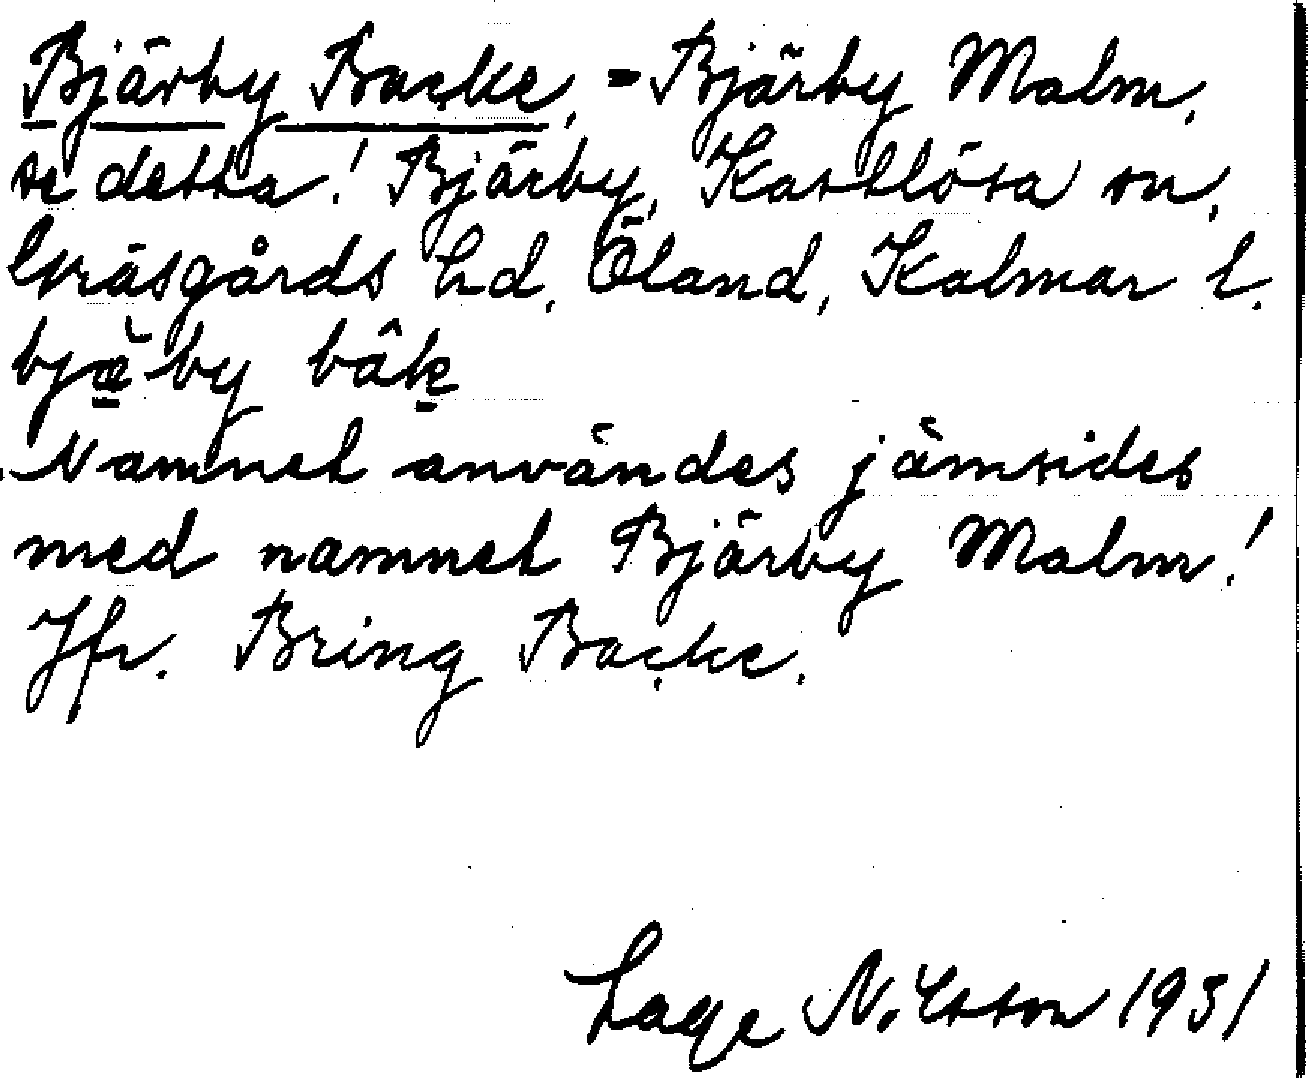 Bjärby Backe, = Bjärby Malm,
se detta! Bjärby, Kastlösa sn,
Gräsgårds hd, Öland, Kalmar l.
Namnet användes jämsides
med namnet Bjärby Malm!
Jfr. Bring Backe.
Lage Nilsson 1931